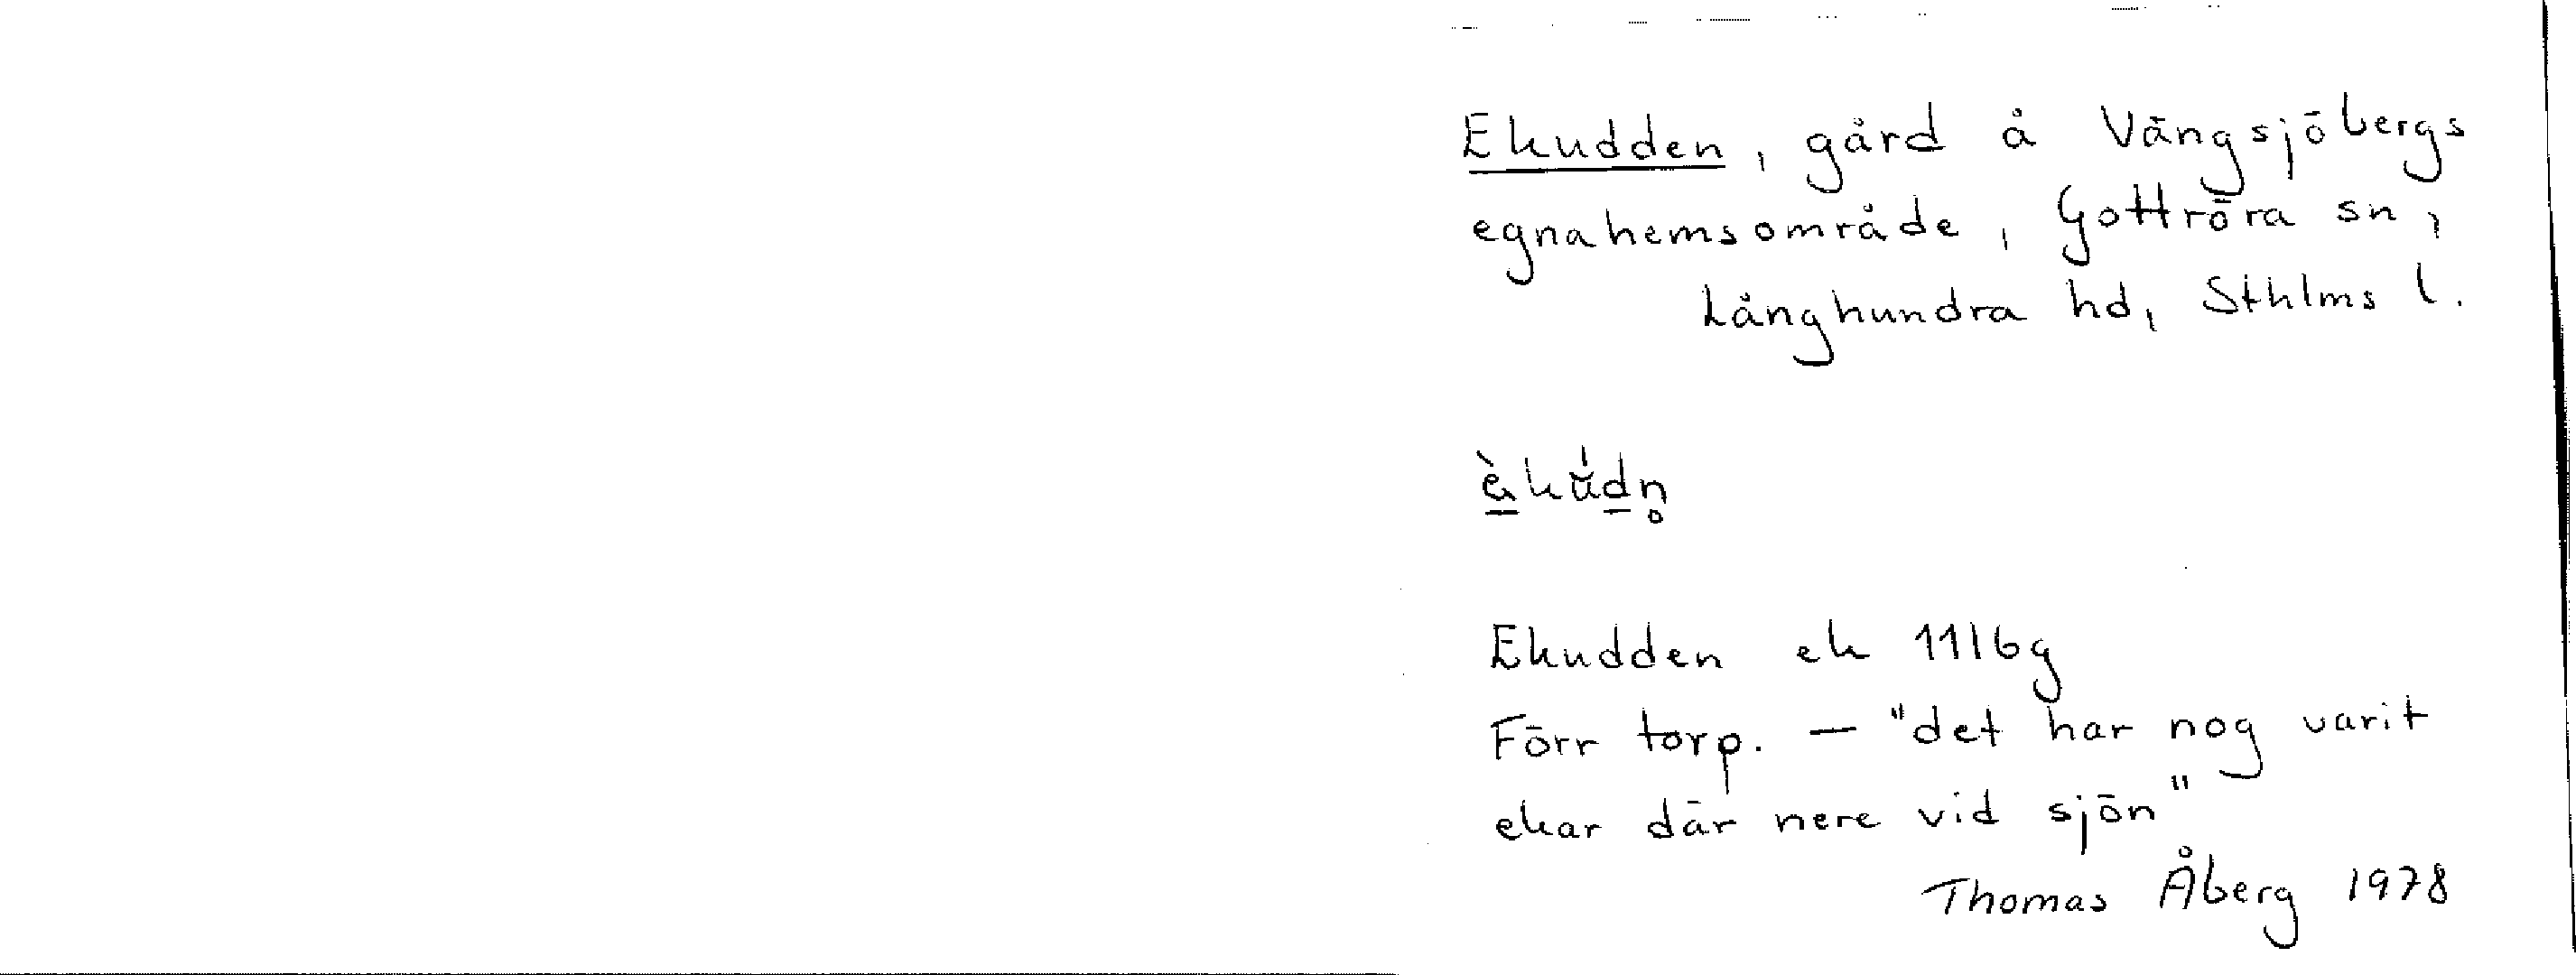 Ekudden, gård å Vängsjöbergs
egnahemsområde, Gottröra sn,
Långhundra hd, Sthlms l.
Ekudden ek 11I6g
Förr torp. — "det har nog varit
ekar där nere vid sjön"
Thomas Åberg 1978